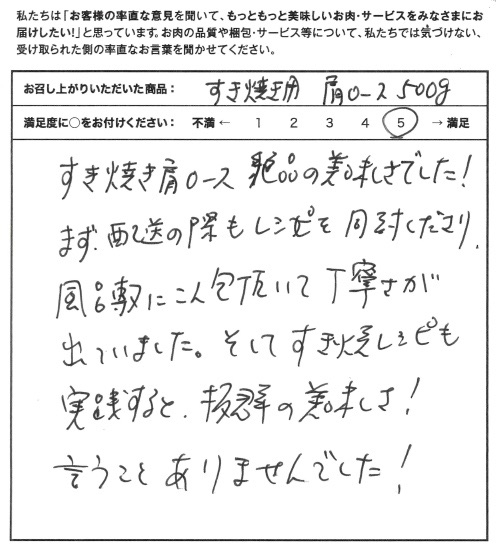 私たちは「お客様の率直な意見を聞いて、もっともっと美味しいお肉・サービスをみなさまにお
届けしたい!」と思っています。お肉の品質や梱包・サービス等について、私たちでは気づけない、
受け取られた側の率直なお言葉を聞かせてください。
お召し上がりいただいた商品: すき焼き用 肩ロース 500g
満足度に○をお付けください: 不満 ← 1 2 3 4 5 → 満足
すき焼き肩ロース 絶品の美味しさでした!
まず、配送の際もレシピを同封くださり、
風呂敷に包頂いて丁寧さが
出ていました。そしてすき焼レシピも
実践すると、抜群の美味しさ!
言うことありませんでした!